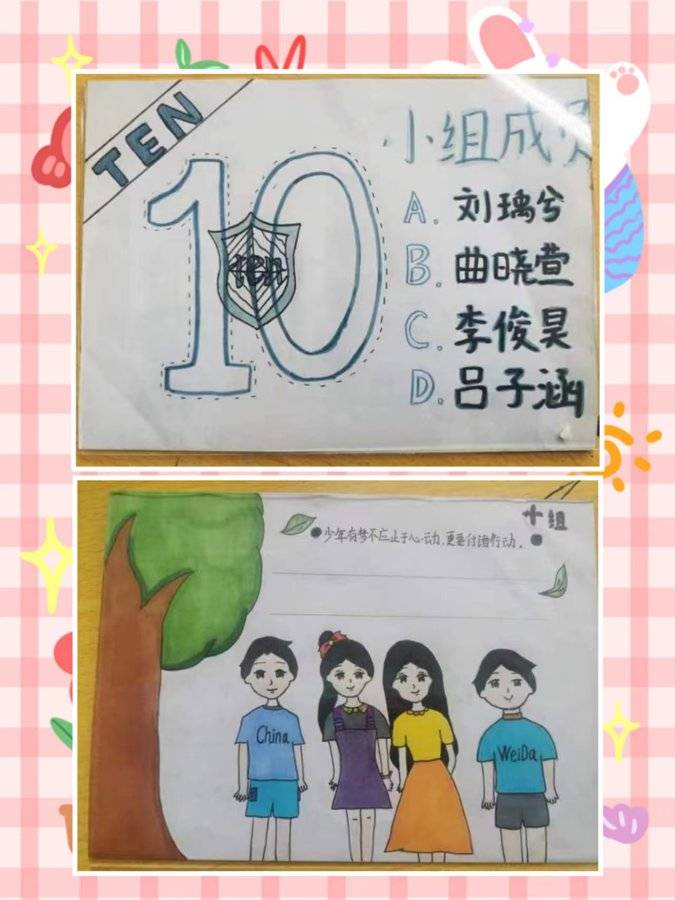 TEN
10
ten
小组成员
A. 刘瑀兮
B. 曲晓萱
C. 李俊昊
D. 吕子涵
十组
少年有梦不应止于心动,更要付诸行动。
China
WeiDa